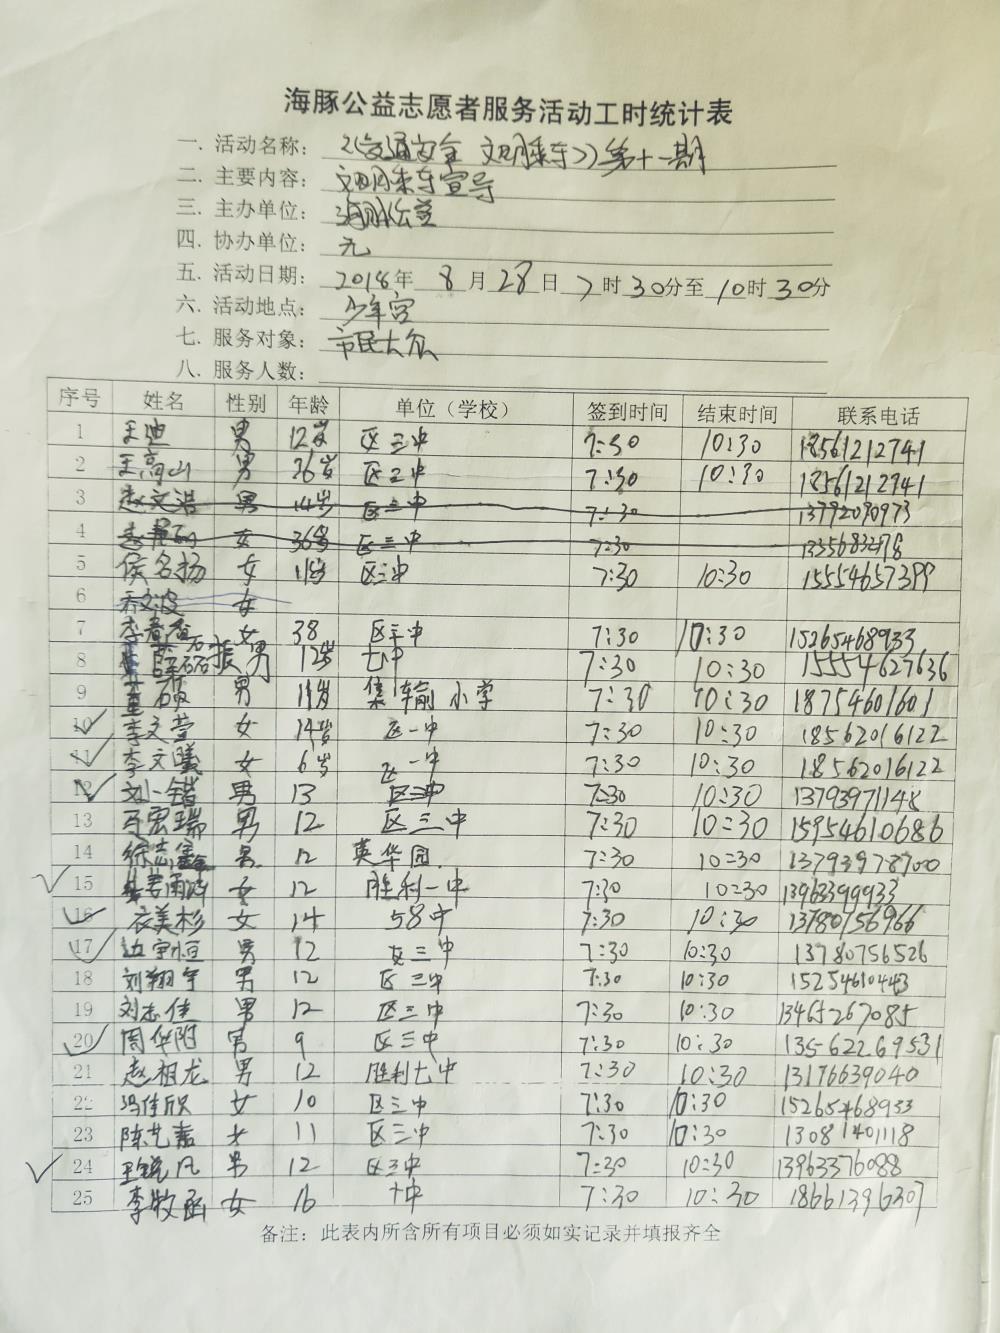 海豚公益志愿者服务活动工时统计表
一. 活动名称: 《交通安全 文明乘车》第十一期
二. 主要内容: 文明乘车宣导
三. 主办单位: 海豚公益
四. 协办单位: 无
五. 活动日期: 2018年 8月 28日 7时30分至10时30分
六. 活动地点: 少年宫
七. 服务对象: 市民大众
八. 服务人数:
序号 姓名 性别 年龄 单位（学校） 签到时间 结束时间 联系电话
1 王迪 男 12岁 区三中 7:30 10:30 18561212741
2 王高山 男 36岁 区三中 7:30 10:30 18561212741
3 赵文浩 男 14岁 区三中 7:30 13792090973
4 女 36岁 区三中 7:30 13356832178
5 侯名扬 女 11岁 区三中 7:30 10:30 15554657399
6 乔文波 女
7 李春香 女 38 区三中 7:30 10:30 15265468933
8 振 男 12岁 七中 7:30 10:30 15554627636
9 男 11岁 集输小学 7:30 10:30 18754601601
10 李文萱 女 14岁 区一中 7:30 10:30 18562016122
11 李文曦 女 6岁 区一中 7:30 10:30 18562016122
12 刘一锴 男 13 区三中 7:30 10:30 13793971148
13 马宏瑞 男 12 区三中 7:30 10:30 15954610686
14 徐志鑫 男 12 英华园 7:30 10:30 13793978900
15 女 12 胜利一中 7:30 10:30 13963399933
16 衣美杉 女 14 58中 7:30 10:30 13780756966
17 边宇恒 男 12 区三中 7:30 10:30 13780756526
18 刘翔宇 男 12 区三中 7:30 10:30 15254610443
19 刘志佳 男 12 区三中 7:30 10:30 13465267085
20 周华阳 男 9 区三中 7:30 10:30 13562269531
21 赵相龙 男 12 胜利七中 7:30 10:30 13176639040
22 冯佳欣 女 10 区三中 7:30 10:30 15265468933
23 陈艺嘉 女 11 区三中 7:30 10:30 13081401118
24 王锐凡 男 12 区三中 7:30 10:30 13963376088
25 李牧函 女 16 十中 7:30 10:30 18661396307
备注: 此表内所含所有项目必须如实记录并填报齐全